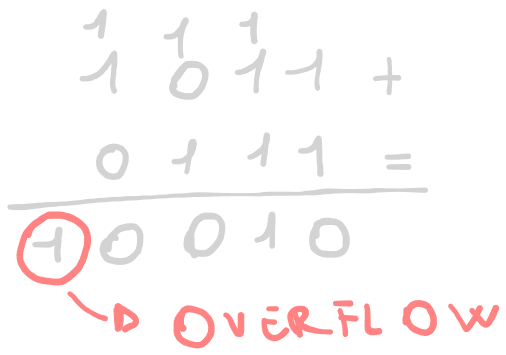 1 1 1
1 0 1 1 +
0 1 1 1 =
1 0 0 1 0
OVERFLOW